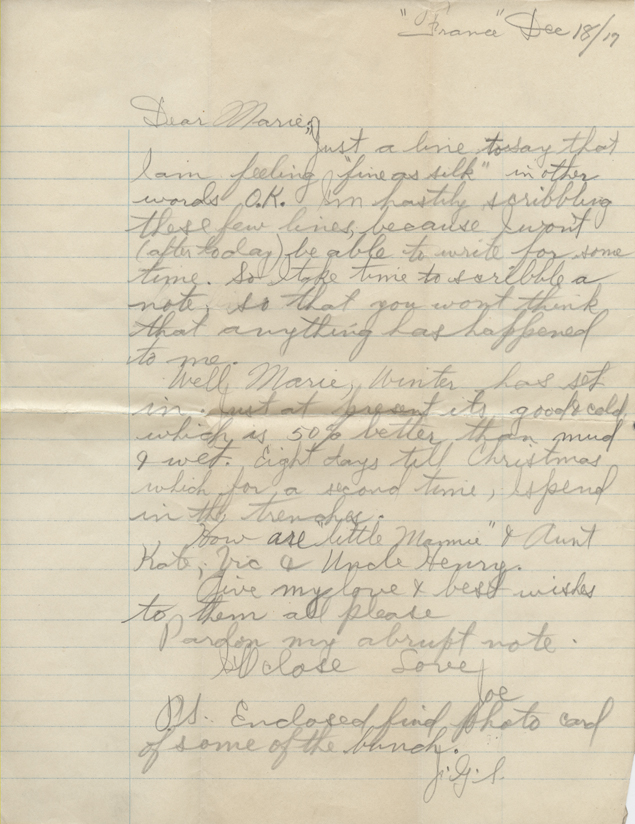 "France" Dec 18/17
Dear Marie,
Just a line to say that
I am feeling "fine as silk" in other
words O.K. I'm hastily scribbling
these few lines, because I won't
(after today) be able to write for some
time. So I take time to scribble a
note, so that you wont think
that anything has happened
to me.
Well, Marie, Winter has set
in. Just at present its, good & cold,
which is 50% better than mud
& wet. Eight days till Christmas
which for a second time, I spend
in the trenches.
How are "little Mannie" & Aunt
Kate, Vic & Uncle Henry.
Give my love & best wishes
to them all please
Pardon my abrupt note.
I'll close Love
Joe
P.S. Enclosed find photo card
of some of the bunch.
J.G.S.